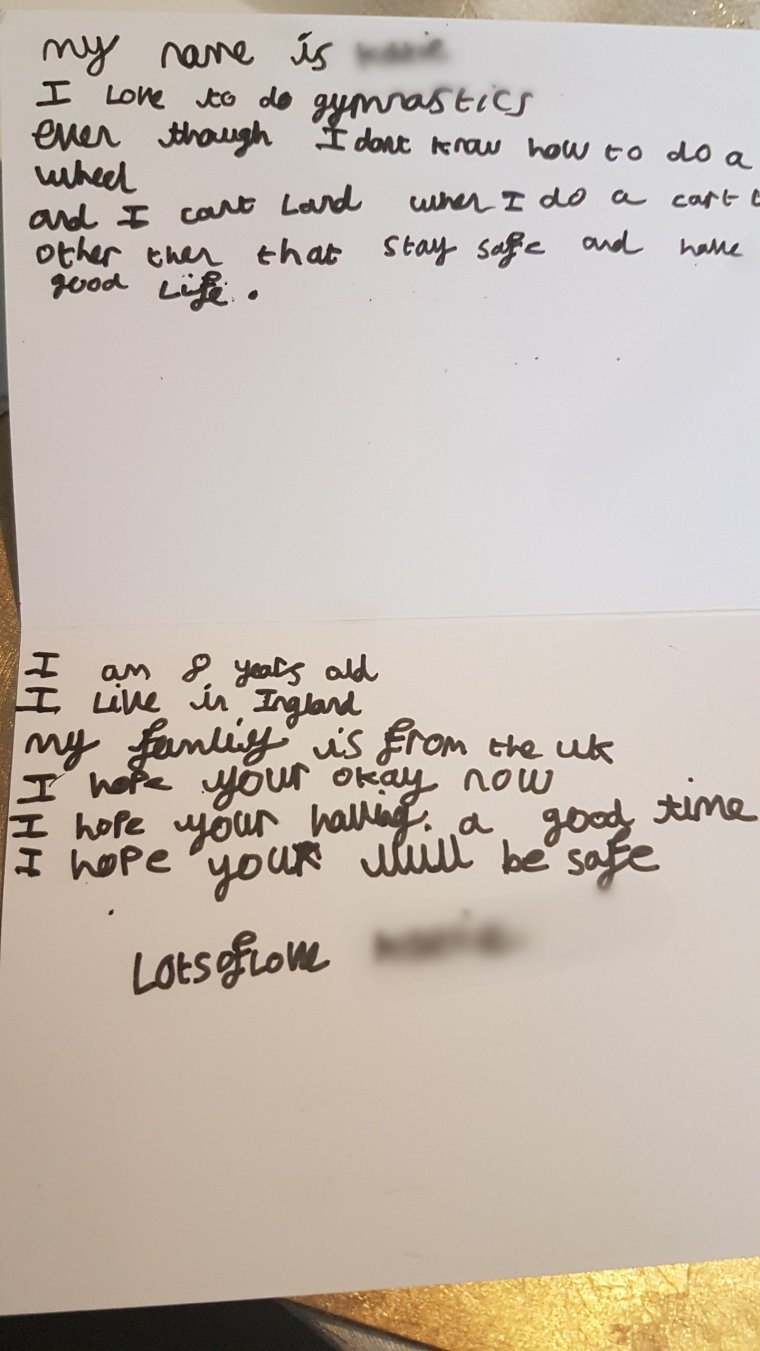 my name is
I Love to do gymnastics
even though I dont know how to do a
wheel
and I cant Land when I do a cart
other then that stay safe and have
good Life.
I am 8 years old
I Live in Ingland
my famliy is from the uk
I hope your okay now
I hope your having a good time
I hope your will be safe
Lots of Love